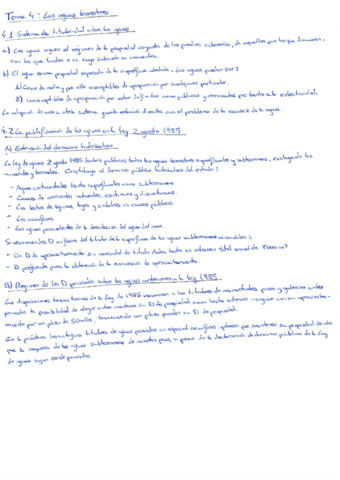 Tema 4: Las aguas terrestres
4.1 Sistema de titularidad sobre las aguas
a) Las aguas siguen el régimen de la propiedad conjunta de los predios ribereños, de aquellos por los que discurren,
con los que lindan o en cuyo subsuelo se encuentran.
b) El agua como propiedad separada de la superficie aledaña. Las aguas pueden ser:
1) Cosa de nadie y por ello susceptibles de apropiación por cualquier particular.
2) Insusceptibles de apropiación por estar definidas como públicas y reservadas por tanto a la colectividad.
La adopción de uno u otro sistema guarda relación directa con el problema de la escasez de agua.
4.2 La publificación de las aguas en la ley 2 agosto 1985
A) Extensión del dominio hidráulico
La ley de aguas 2 agosto 1985 declara públicas todas las aguas terrestres superficiales y subterráneas, excluyendo las
minerales y termales. Constituye el dominio público hidráulico del estado:
- Aguas continentales tanto superficiales como subterráneas
- Cauces de corrientes naturales, continuas y discontinuas.
- Los lechos de lagunas, lagos y embalses en cauces públicos.
- Los acuíferos
- Las aguas procedentes de la desalación del agua del mar.
Se reconocen D en favor del titular de la superficie de las aguas subterráneas renovables:
- Un D de aprovechamiento sin necesidad de título hasta un volumen total anual de 7000 m³
- D preferente para la obtención de la concesión de aprovechamiento.
B) Régimen de los D privados sobre las aguas subterráneas en la ley 1985
Las disposiciones transitorias de la Ley de 1985 reconocen a los titulares de manantiales, pozos y galerías antes
privados la posibilidad de elegir entre mantener su D de propiedad como hasta entonces o seguir con su aprovecha-
miento por un plazo de 50 años, transcurrido ese plazo pierden su D de propiedad.
En la práctica los antiguos titulares de aguas privadas en especial acuíferos optaron por mantener su propiedad de ahí
que la mayoría de las aguas subterráneas de nuestro país, a pesar de la declaración de dominio público de la Ley
de aguas sigan siendo privadas.